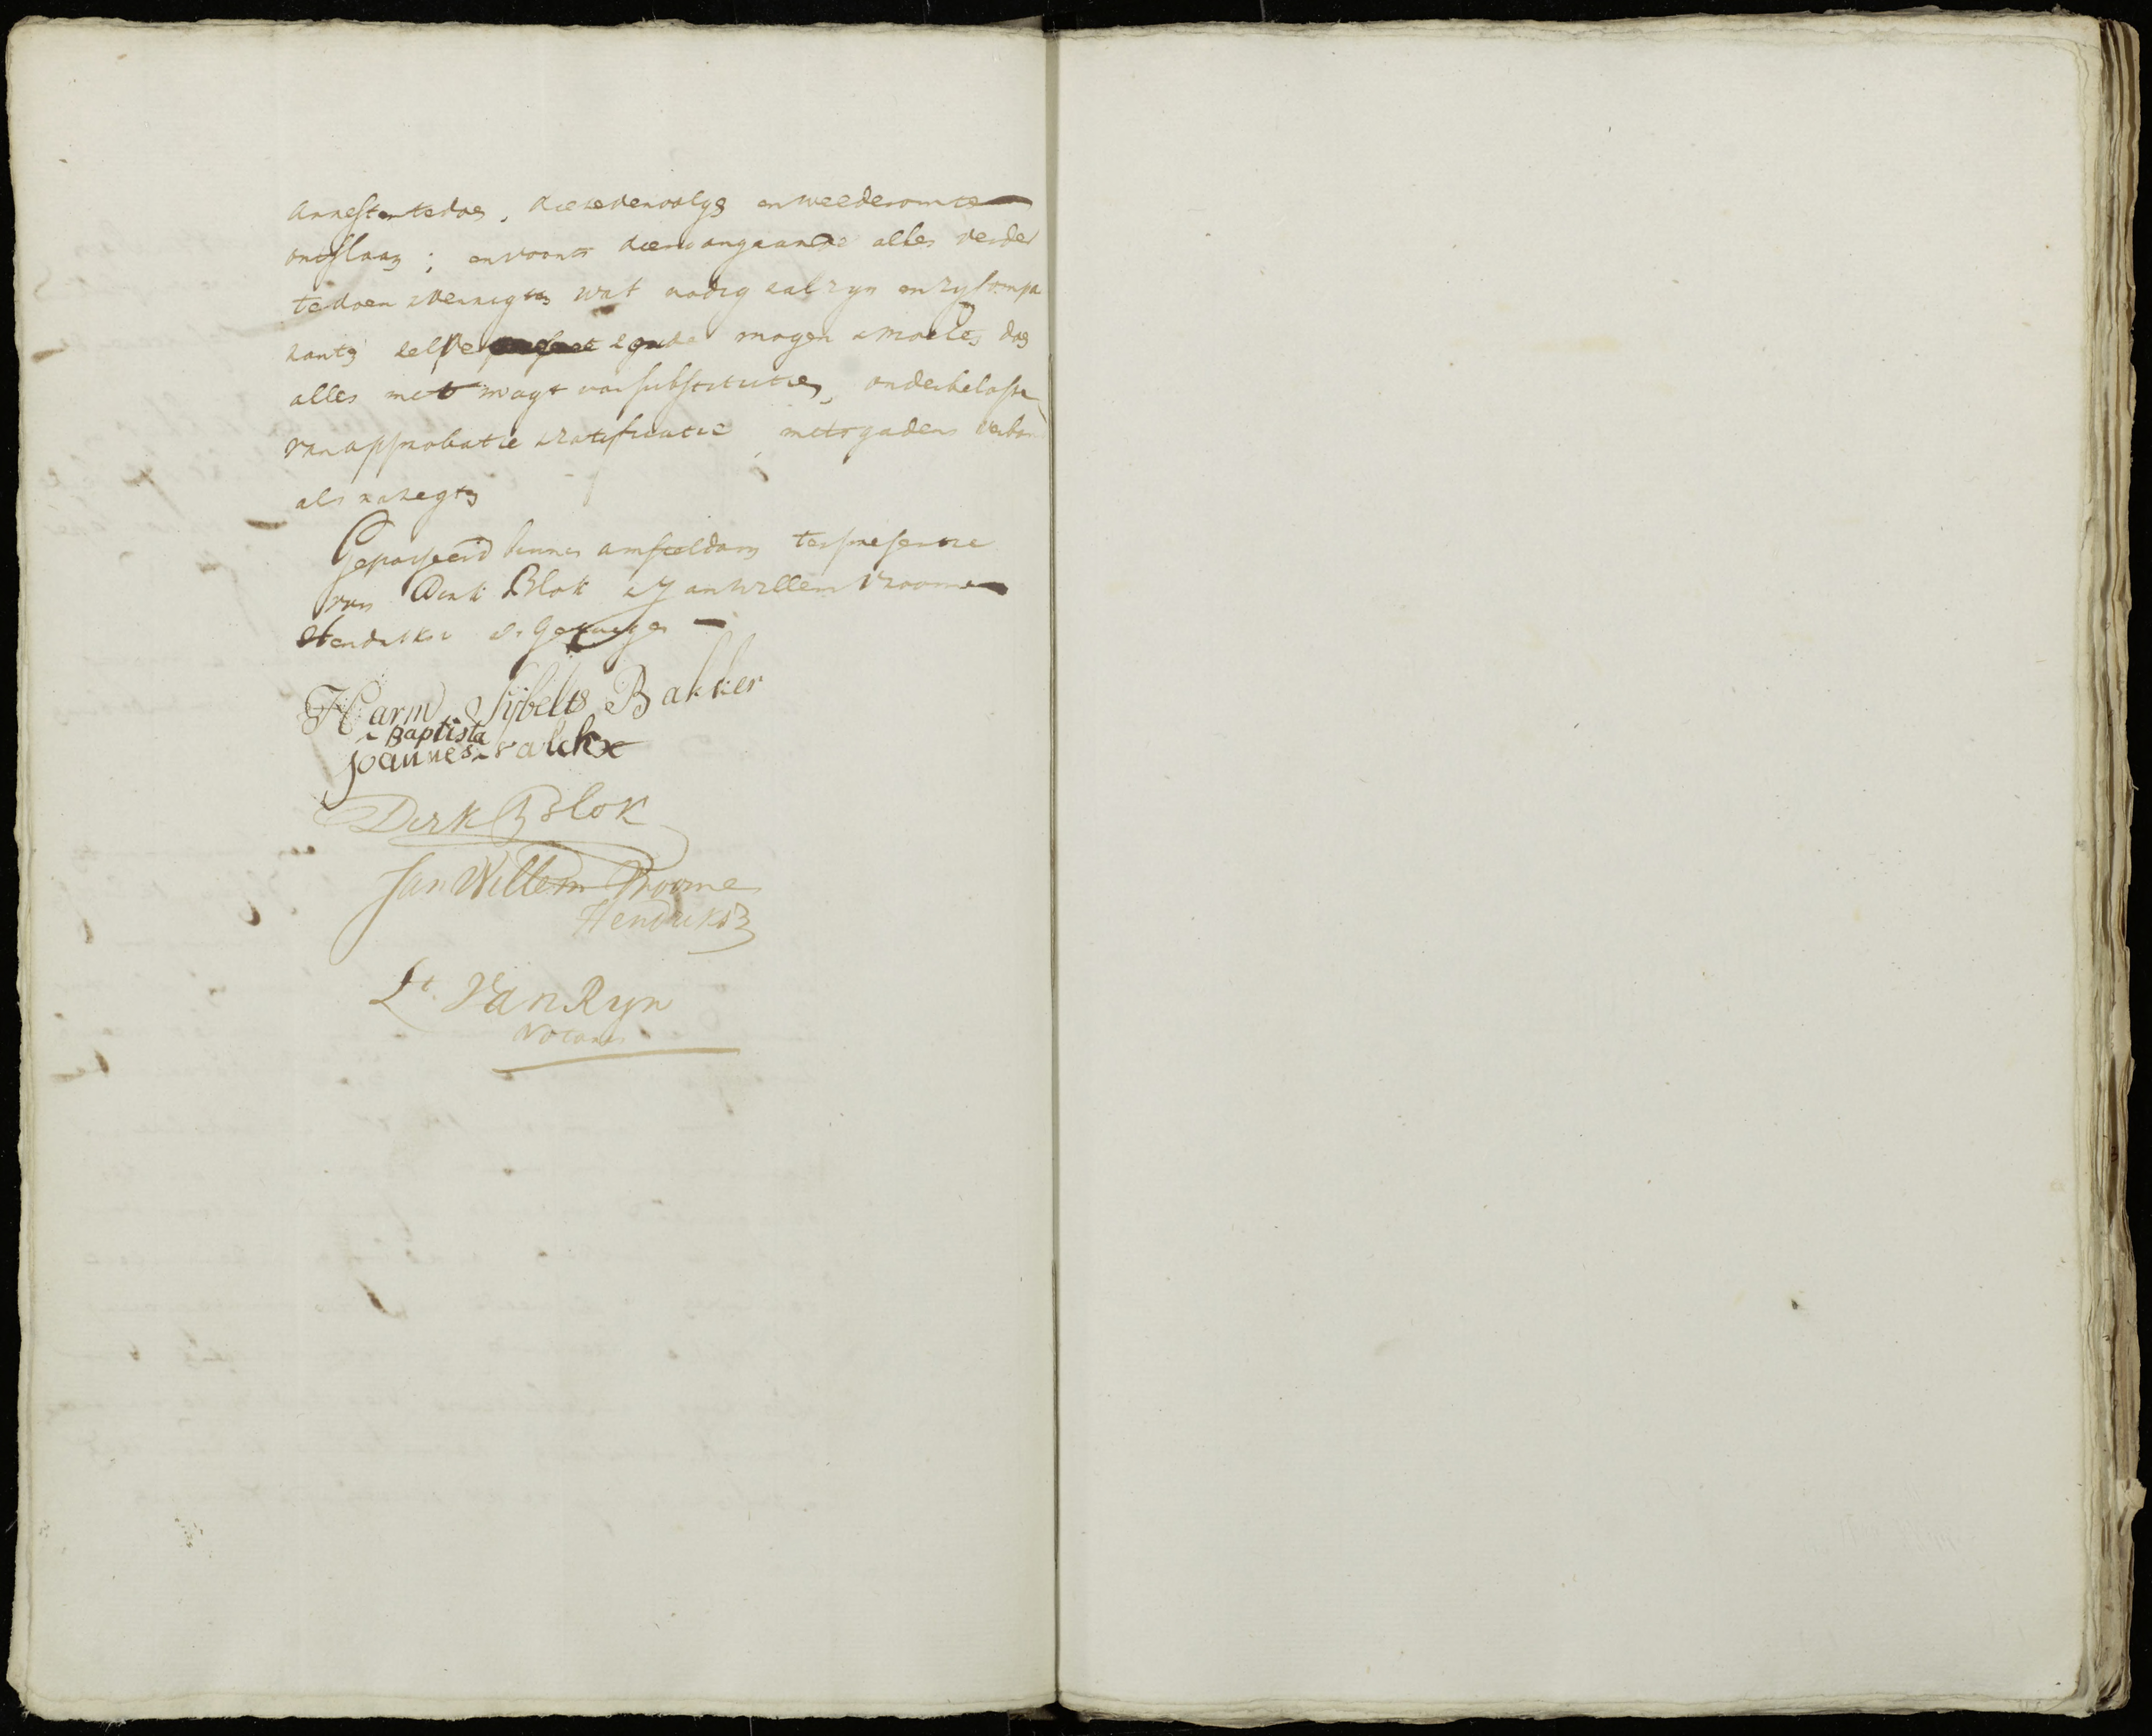 Arresten te doen, die te vervolgen en weederom te
ontslaan; en voorts dien aangaande alles verder
te doen & verrigten wat nodig sal zyn en zy Compa
ranten selve mogen & moeten doen
alles met magt van substitutie, onder belofte
van approbatie & ratificatie, mitsgaders verban
als na regten
Gepasseerd binnen Amsteldam ter presentie
van Dirk Blok & Jan Willem Vroome
Hendriksz als Getuigen
Harm Sijbelts Bakker
Baptista
Joannes valckx
Dirk Blok
Jan Willem Vroome
Hendriksz
Lt Van Ryn
Notaris